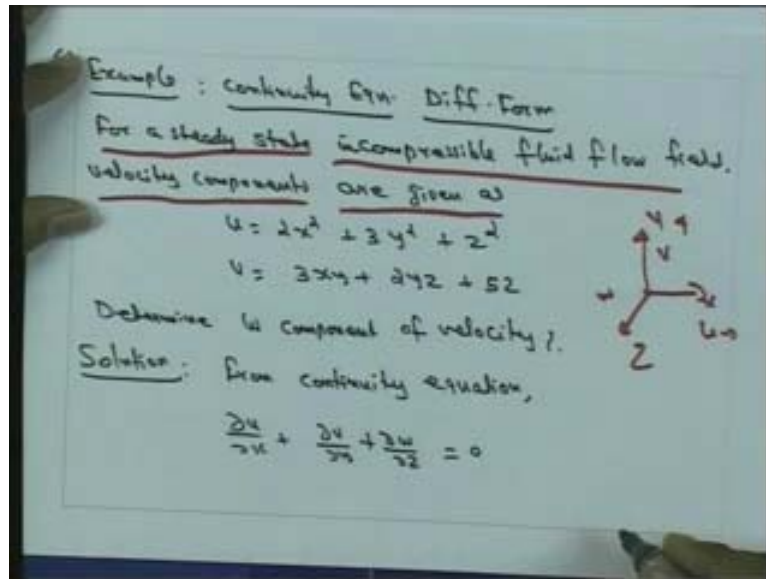 Example : Continuity Eqn. Diff. Form
For a steady state incompressible fluid flow field.
velocity components are given as
u = 2x² + 3y² + z²
v = 3xy + 2yz + 5z
Determine w component of velocity?.
Solution: From continuity equation,
∂u/∂x + ∂v/∂y + ∂w/∂z = 0
y
v
x
u→
w
z